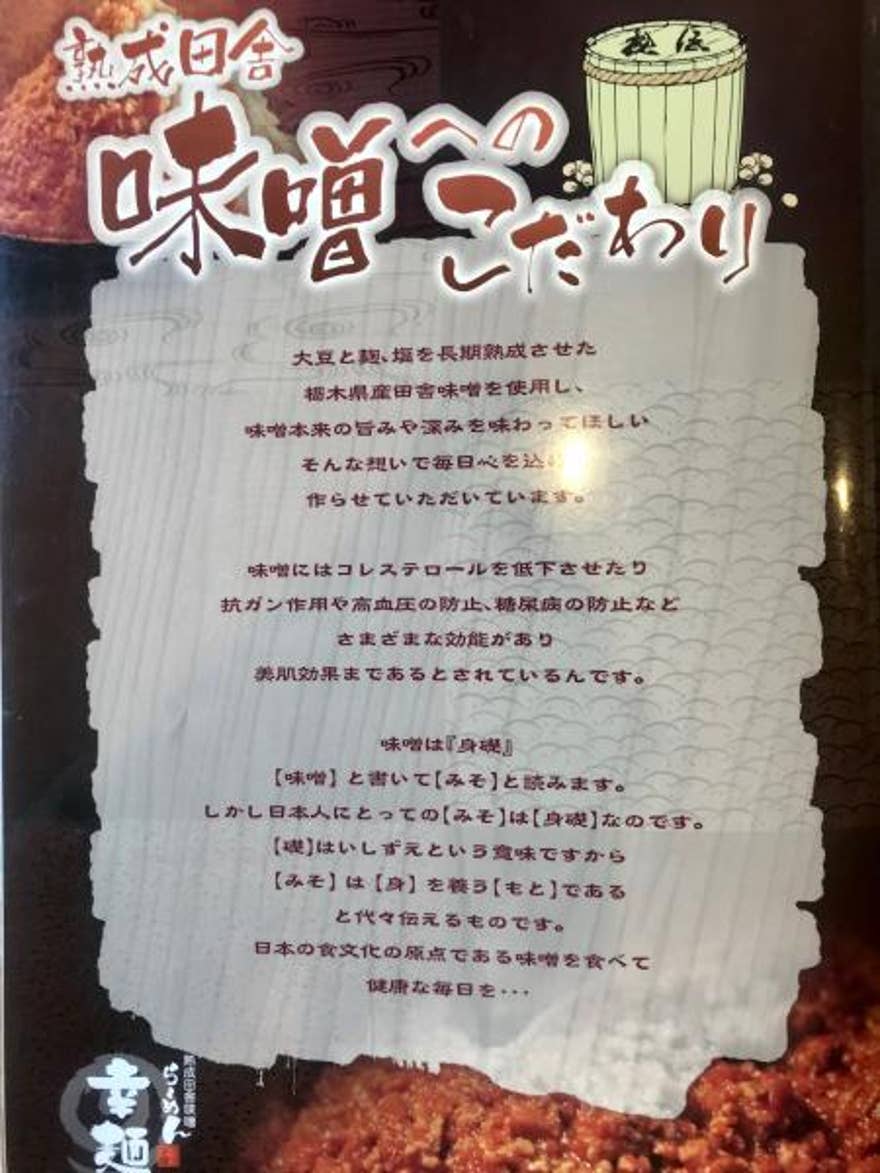 熟成田舎
味噌へのこだわり
秘伝
大豆と麹、塩を長期熟成させた
栃木県産田舎味噌を使用し、
味噌本来の旨みや深みを味わってほしい
そんな想いで毎日心を込
作らせていただいています。
味噌にはコレステロールを低下させたり
抗ガン作用や高血圧の防止、糖尿病の防止など
さまざまな効能があり
美肌効果まであるとされているんです。
味噌は『身礎』
【味噌】と書いて【みそ】と読みます。
しかし日本人にとっての【みそ】は【身礎】なのです。
【礎】はいしずえという意味ですから
【みそ】は【身】を養う【もと】である
と代々伝えるものです。
日本の食文化の原点である味噌を食べて
健康な毎日を・・・
熟成田舎味噌
らーめん
幸麺